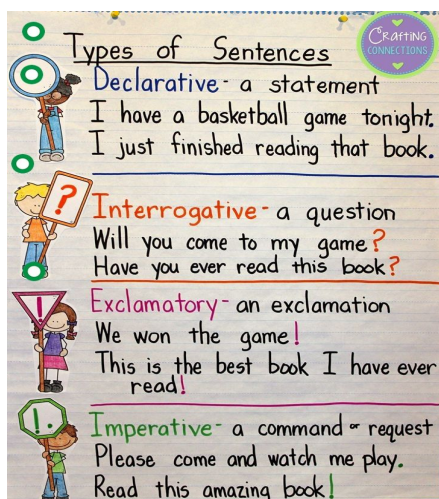 CRAFTING
CONNECTIONS
Types of Sentences
Declarative - a statement
I have a basketball game tonight.
I just finished reading that book.
?
Interrogative - a question
Will you come to my game?
Have you ever read this book?
!
Exclamatory - an exclamation
We won the game!
This is the best book I have ever
read!
!.
Imperative - a command or request
Please come and watch me play.
Read this amazing book!